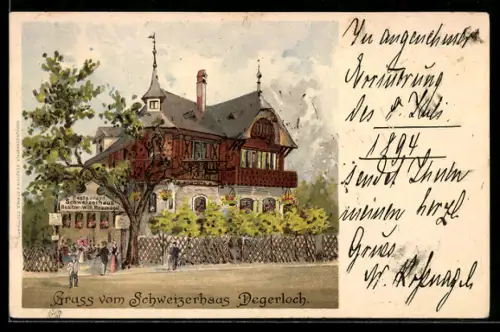 Restaurant
Schweizerhaus
Gruss vom Schweizerhaus Degerloch.
In angenehmer
Erinnerung
des 8. Juli
1894
sendet Ihnen
meinen herzl.
Gruss
W. Hofnagel